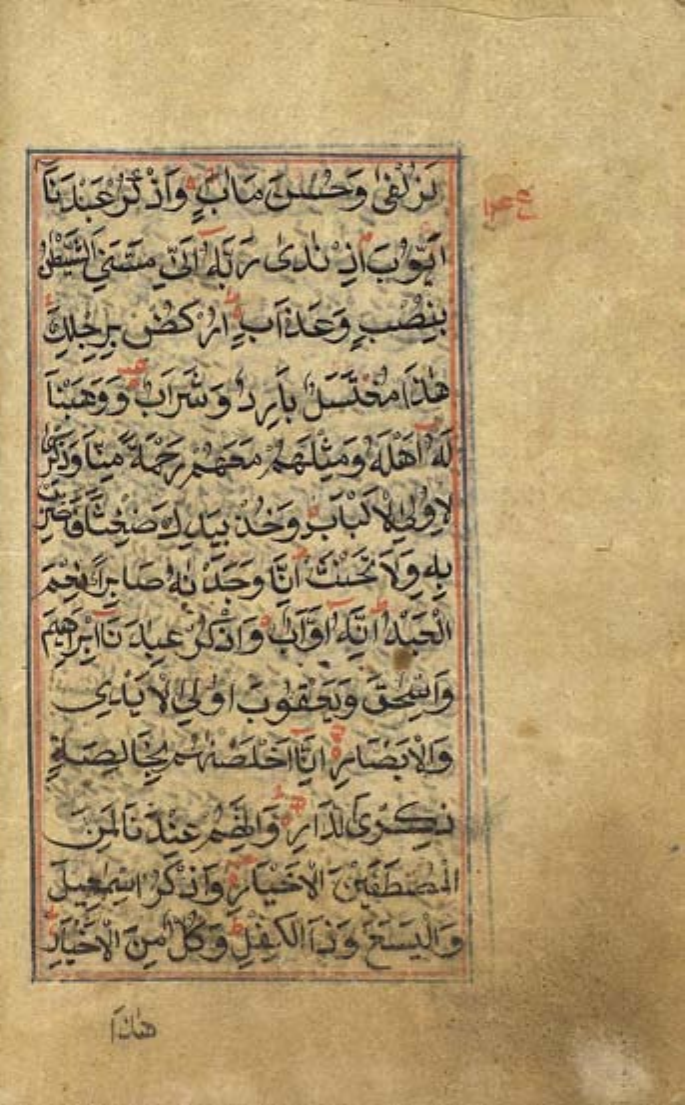 لَزُلْفٰى وَحُسْنَ مَاٰبٍ وَاذْكُرْ عَبْدَنَآ
اَيُّوْبَ اِذْ نَادٰى رَبَّهٗٓ اَنِّيْ مَسَّنِيَ الشَّيْطٰنُ
بِنُصْبٍ وَعَذَابٍ اُرْكُضْ بِرِجْلِكَ
هٰذَا مُغْتَسَلٌ بَارِدٌ وَشَرَابٌ وَوَهَبْنَا
لَهٗٓ اَهْلَهٗ وَمِثْلَهُمْ مَعَهُمْ رَحْمَةً مِنَّا وَذِكْرٰى
لِاُولِي الْاَلْبَابِ وَخُذْ بِيَدِكَ ضِغْثًا فَاضْرِبْ
بِهٖ وَلَا تَحْنَثْ اِنَّا وَجَدْنٰهُ صَابِرًا نِعْمَ
الْعَبْدُ اِنَّهٗٓ اَوَّابٌ وَاذْكُرْ عِبٰدَنَآ اِبْرٰهِيْمَ
وَاِسْحٰقَ وَيَعْقُوْبَ اُولِي الْاَيْدِيْ
وَالْاَبْصَارِ اِنَّآ اَخْلَصْنٰهُمْ بِخَالِصَةٍ
ذِكْرَى الدَّارِ وَاِنَّهُمْ عِنْدَنَا لَمِنَ
الْمُصْطَفَيْنَ الْاَخْيَارِ وَاذْكُرْ اِسْمٰعِيْلَ
وَالْيَسَعَ وَذَا الْكِفْلِ وَكُلٌّ مِنَ الْاَخْيَارِ
هٰذَا